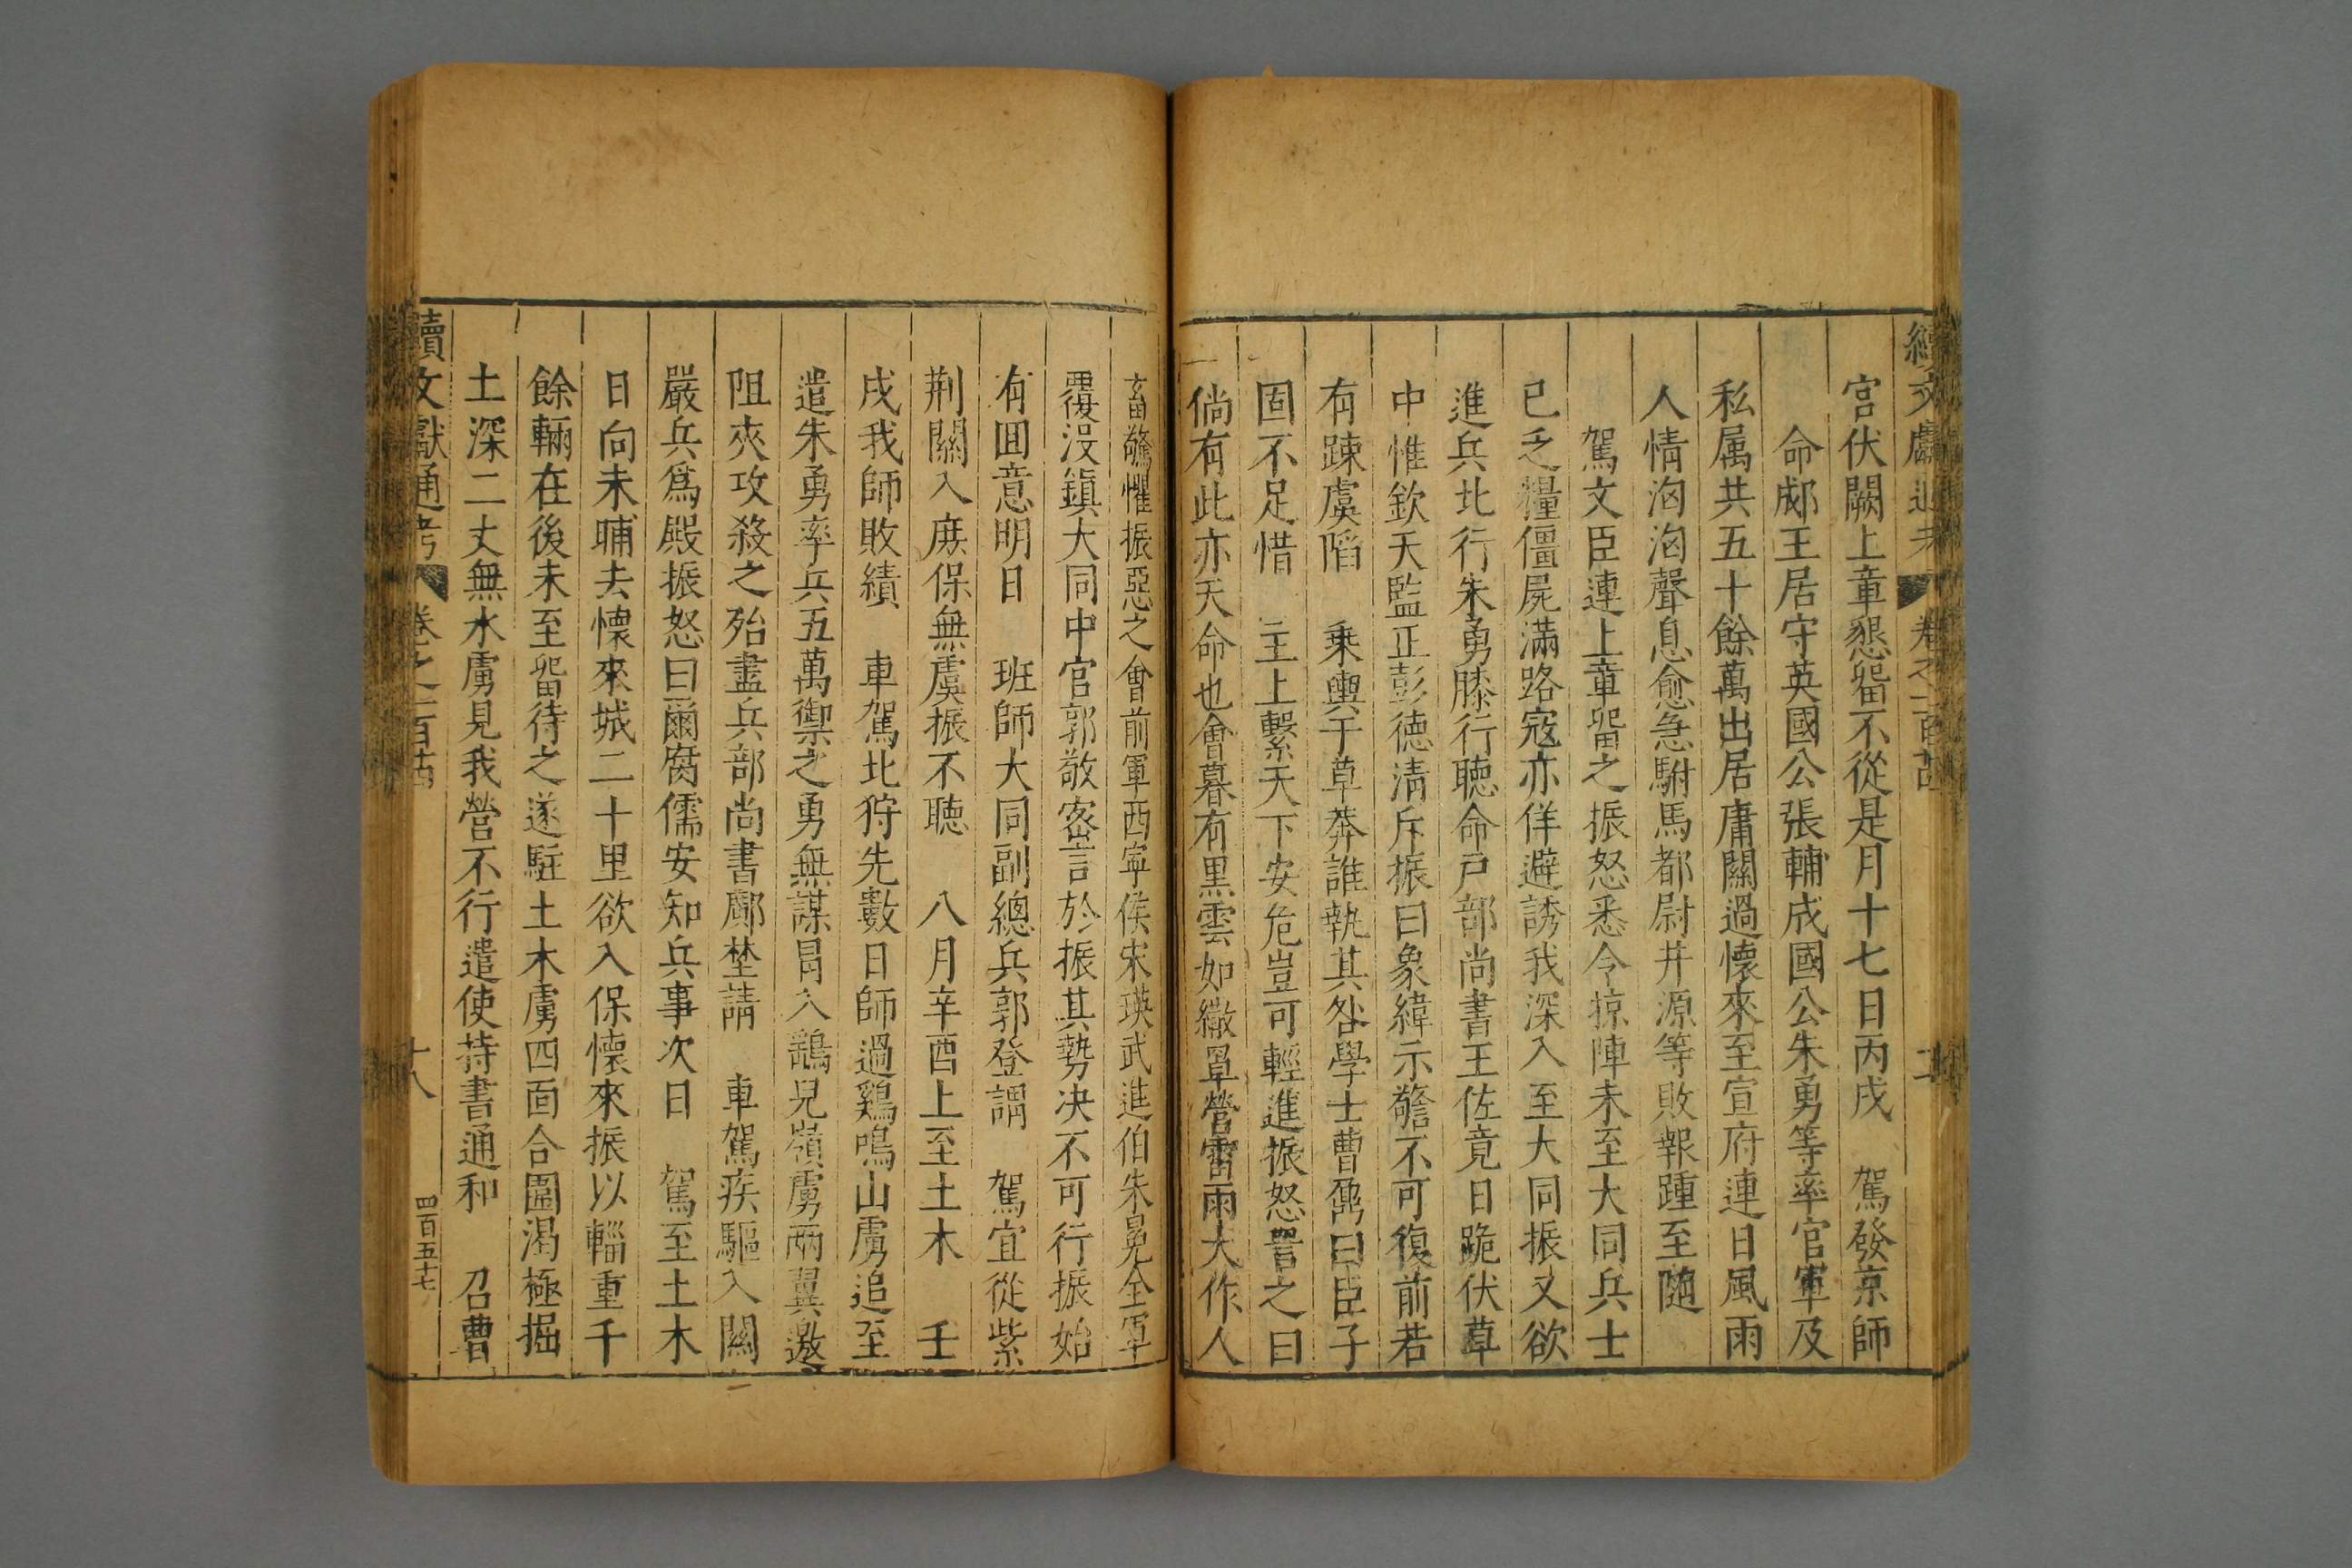 續文獻通考 卷之二百十四
宮伏闕上章懇畱不從是月十七日丙戌 駕發京師
命郕王居守英國公張輔成國公朱勇等率官軍及
私属共五十餘萬出居庸關過懷來至宣府連日風雨
人情洶洶聲息愈急駙馬都尉井源等敗報踵至隨
駕文臣連上章畱之振怒悉令掠陣未至大同兵士
已乏糧僵屍滿路寇亦佯避誘我深入至大同振又欲
進兵北行朱勇膝行聽命戸部尚書王佐竟日跪伏草
中惟欽天監正彭德清斥振曰象緯示警不可復前若
有踈虞䧟 乗輿于草莽誰執其咎學士曹鼐曰臣子
固不足惜 主上繫天下安危豈可輕進振怒詈之曰
倘有此亦天命也會暮有黒雲如繖罩營雷雨大作人
畜驚懼振惡之會前軍西寧侯宋瑛武進伯朱冕全軍
覆没鎮大同中官郭敬密言於振其勢决不可行振始
有囬意明日 班師大同副總兵郭登謂 駕宜從紫
荆關入庶保無虞振不聽 八月辛酉上至土木 壬
戌我師敗績 車駕北狩先數日師過鷄鳴山虜追至
遣朱勇率兵五萬禦之勇無謀冐入鷂兒嶺虜兩翼邀
阻夾攻殺之殆盡兵部尚書鄺埜請 車駕疾驅入關
嚴兵爲殿振怒曰爾腐儒安知兵事次日 駕至土木
日向未晡去懷來城二十里欲入保懷來振以輜重千
餘輛在後未至畱待之遂駐土木虜四面合圍渴極掘
土深二丈無水虜見我營不行遣使持書通和 召曹
續文獻通考 卷之二百十四 十八 四百五十七